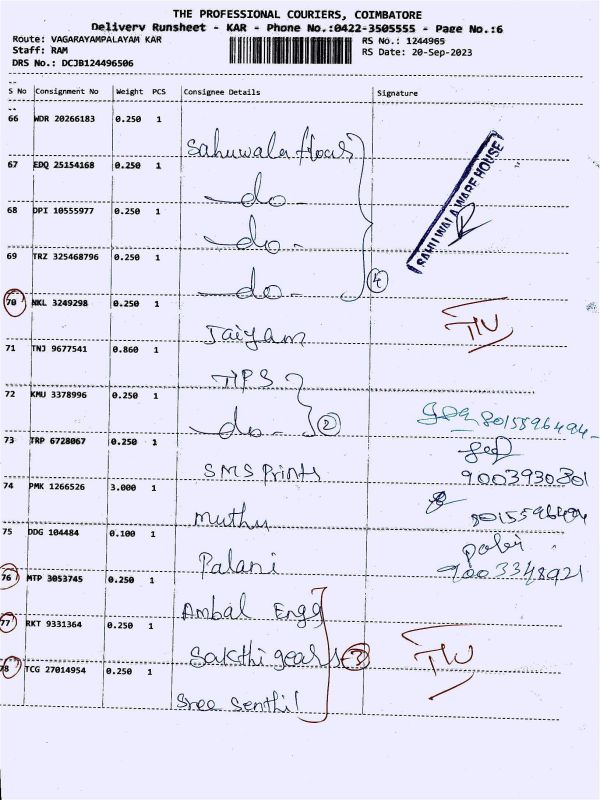 THE PROFESSIONAL COURIERS, COIMBATORE
Delivery Runsheet - KAR - Phone No.:0422-3505555 - Page No.:6
Route: VAGARAYAMPALAYAM KAR RS No.: 1244965
Staff: RAM RS Date: 20-Sep-2023
DRS No.: DCJB124496506
S No Consignment No Weight PCS Consignee Details Signature
66 WDR 20266183 0.250 1
Sahuwala
67 EDQ 25154168 0.250 1
do-
SAHUWALA WARE HOUSE
68 DPI 10555977 0.250 1
do-
69 TRZ 325468796 0.250 1
do- 4
70 NKL 3249298 0.250 1
Jaiyam
71 TNJ 9677541 0.860 1
TPS
72 KMU 3378996 0.250 1
do- 2 8015596494-
73 TRP 6728067 0.250 1
SMS Prints 9003930801
74 PMK 1266526 3.000 1
Muthu 8015596494
75 DDG 104484 0.100 1
Palani 9003348921
76 MTP 3053745 0.250 1
Ambal Engg
77 RKT 9331364 0.250 1
Sakthi gears 3
78 TCG 27014954 0.250 1
Sree Senthil